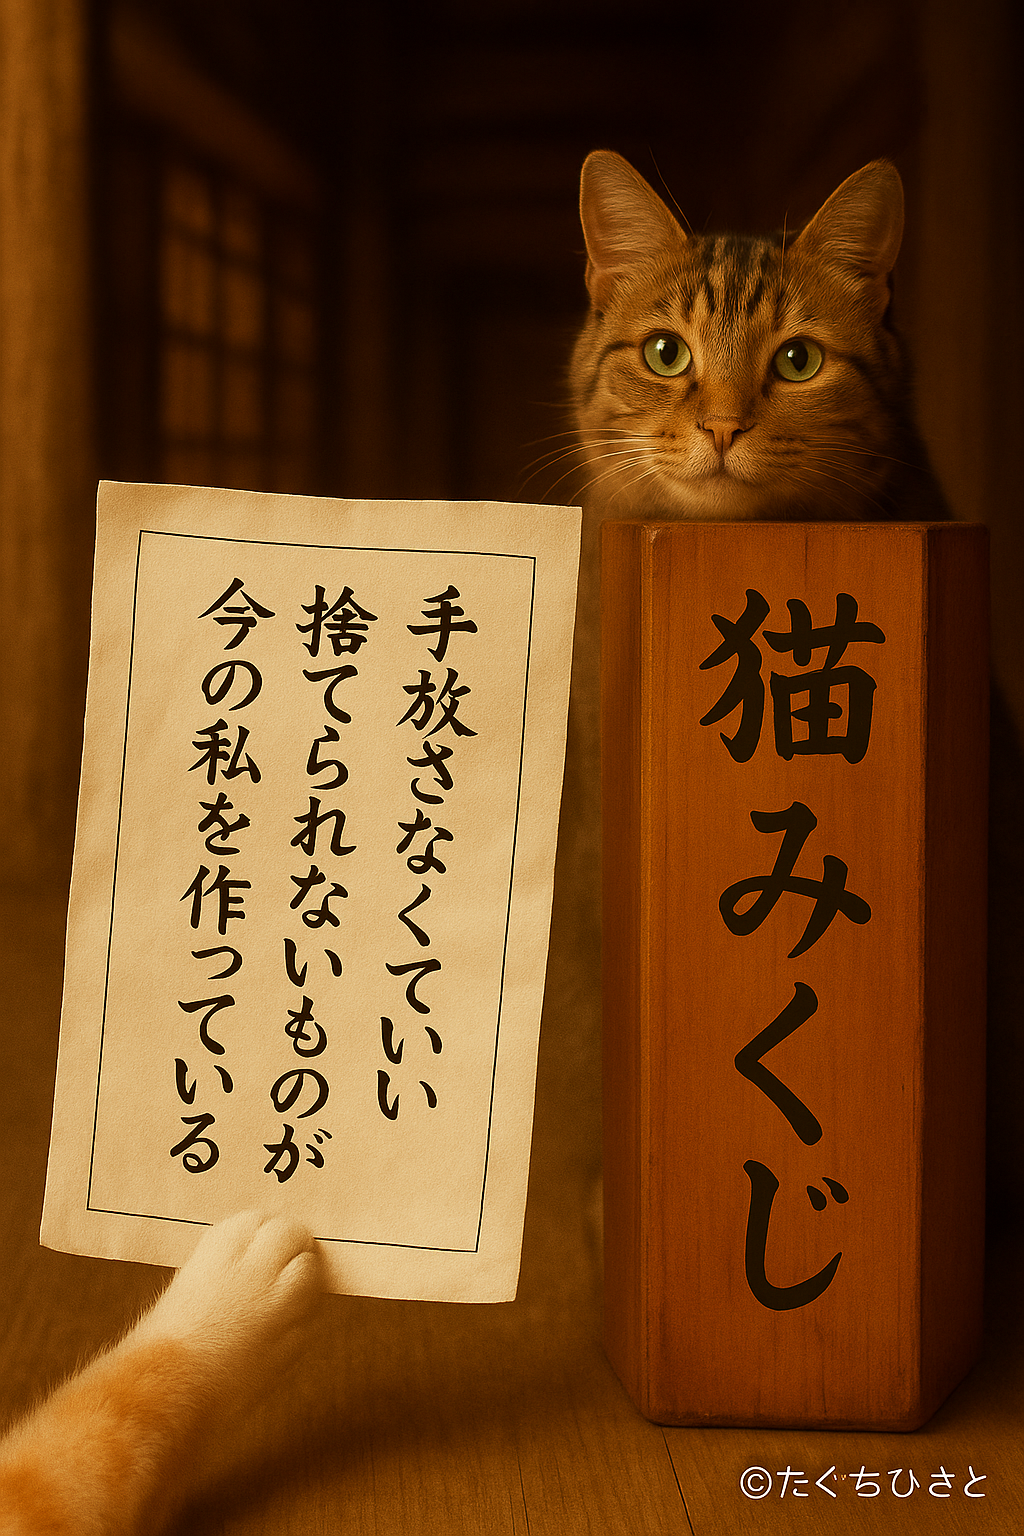 手放さなくていい
捨てられないものが
今の私を作っている
猫みくじ
©たぐちひさと